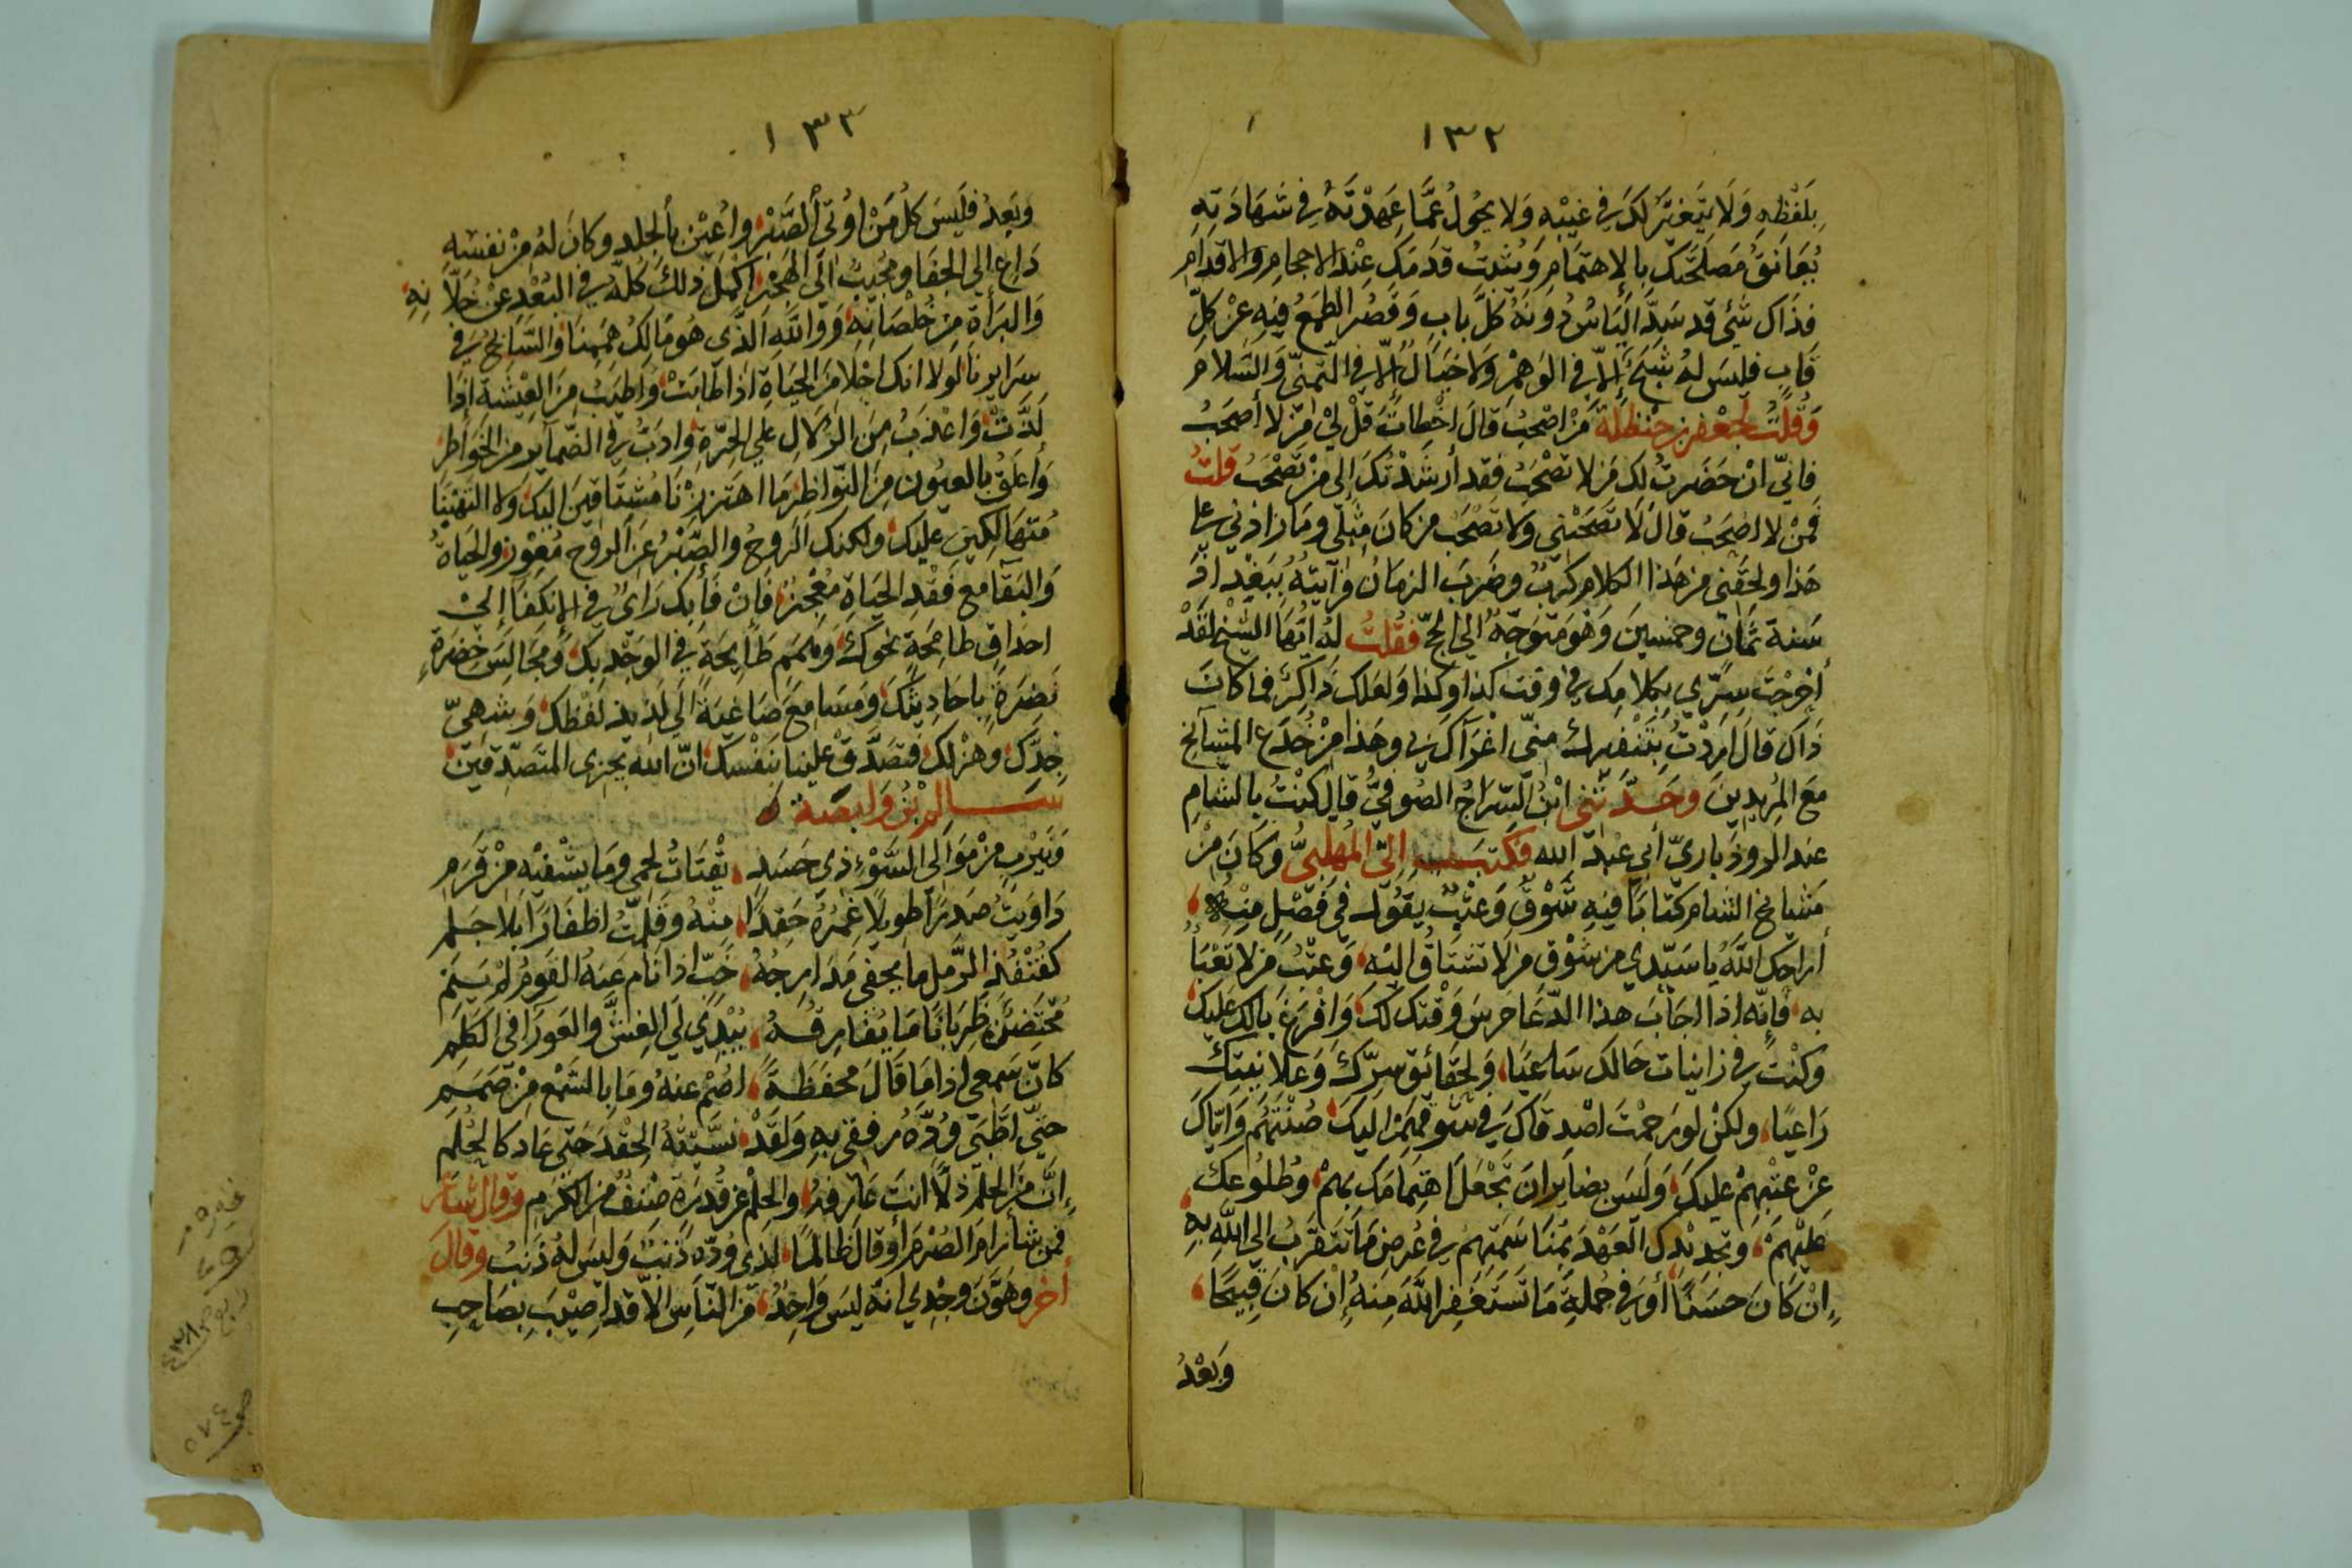 ١٣٢
بِلَفْظِهِ وَلَا يَتَغَيَّرُ لَكَ فِي غَيْبَتِهِ وَلَا يَحُولُ عَمَّا عَهِدْتَهُ فِي شَهَادَتِهِ
يُعَانِقُ مَصْلَحَتَكَ بِالاهتمَامِ وَيُثبتُ قَدَمَكَ عِنْدَ الاحجامِ والاقدام
فذَاكَ شَئٌ قد سَدَّ اليَاسُ دُونَهُ كُلَّ بابٍ وَقصُرَ الطمَعُ فِيهِ عَنْ كُلِّ
قَابٍ فليسَ لهُ شَبَحٌ إلاّ في الوَهمْ وَلا خيَالٌ إلّا في التّمنّي وَالسَّلام
وَقُلتُ لجَعْفر بن حنظلة مَنْ اصْحَبُ قالَ اخْطات قلْ لي مَنْ لا أصحَبُ
فانّي انْ حَضَرتُ لكَ مَن لا تصْحَبُ فقد أرشَدْتُكَ إلى مَنْ تَصْحَبُ قلتُ
فَمنْ لا اصْحَبُ قالَ لَا تصحَبْني وَلا تصْحَبْ من كانَ مثلي وما زادني على
هَذا ولحَقَني من هَذا الكلامِ كربٌ وضَرَبَ الزمانُ فرَأيتهُ ببَغْداذ
سَنة ثمانٍ وخمسينَ وَهْوَ مُتوَجّهٌ الى الحجّ فقُلتُ لهُ ايّهَا الشّيخ لقَدْ
اخرجْتَ سِرّي بكلامِكَ في وقتِ كذا وكذا وَلعَلكَ ذاكِرٌ فما كانَ
ذاكَ قالَ ارَدْتُ بتَنفيرك منّي اغرَاكَ بي وهَذا مِنْ خُدَع المشائخ
مَعَ المريدينَ وحَدَّثني ابْنُ السّرَاجُ الصُوفيُّ قال كنْتُ بالشامِ
عند الروذباريّ أبي عَبْد الله فكتبَ إليّ المُهَلبيُّ وَكانَ مِنْ
مَشَايخ الشام كتَابًا فيهِ شَوْقٌ وَعتْبٌ يَقُولُ في فَصْلٍ مِنْهُ
أراحكَ اللهُ يا سَيّدي من شَوْق مَن لا تشتاقُ اليْهِ وَعتْبُ مَن لا تعْبأ
به فإنّه اذا اجَابَ هذا الدّعَا حَرسَ وَقْتكَ لكَ وَافْرغَ بالكَ عَليك
وكنْتُ في زانيات حَالك سَاعيًا وَلحقَائق سِرّكَ وَعلانيتكَ
رَاعيًا ولكنْ لو رَحمْتَ اصْدقاكَ في شوقهِمْ اليكَ صُنْتَهُمْ وَايّاكَ
عَنْ عتْبهمْ عليكَ وَليسَ بضاير ان تجْعَلَ اهتمَامَكَ بهمْ وطُلوُعكَ
عَليْهِمْ وتجديْدكَ العَهْدَ بمُناسَمتهِمْ في عُرضِ مَا تتقرّبُ الى اللهِ بهِ
إنْ كانَ حَسَنًا أوْ في جُملةِ مَا تَسْتَغْفِر اللهَ مِنهُ إنْ كانَ قبيحًا
وَبَعْدُ
١٣٣
وَبَعدُ فليسَ كل مَنْ اوُتيَ الصَّبْرَ واُعينَ بالجلدِ وكانَ لهُ مِنْ نفسه
دَاعٍ الى الجفَا ومجيبٌ الى الهَجْر اكملَ ذلكَ كلّهُ في البُعْدِ عنْ خلّانِهِ
وَالبَرأةِ مِنْ خُلْصَانِه وَوَاللهِ الذّي هُو مَالكُ هَمِمنا وَالسّايحُ في
سَرايرنا لَولا انكَ احْلا مِنَ الحيَاةِ اذا طَابَتْ وَاطيَبُ مِنَ العِيْشَةِ اذَا
لَذّتْ وَاعْذبُ مِنَ الزلال على الحِرّةِ وادَبُّ في الضّمايرِ من الخواطِر
وَأعلَقُ بالعيُون مِنَ النّواظِرِ مَا اهتززْنَا مُشتاقينَ اليكَ وَلا التهَبْنَا
مُتهَالِكينَ عليكَ ولكنكَ الرُوحُ والصَّبْرُ عَنِ الرُوح مُعْوِزٌ والحَيَاةُ
وَالبَقَا معَ فقْدِ الحَيَاةِ مُعْجِزٌ فَإنْ فَأبَكَ رَايٌ في الإنكفَا إلى
احدَاقٍ طامِحَةٍ نحْوَكَ وَهِمَمٍ طَايحَةٍ في الوَجْدِ بكَ وَمجَالِسَ خضِرَةٍ
نضِرَةٍ باحَاديثكَ وَمَسَامعَ صَاغيَةً الى لذيذ لفْظِكَ وَشهيّ
جدّكَ وهزْلكَ فتصَدّقْ علينا بنَفْسكَ انّ الله يجزي المتَصدّقينَ
سَالم بْنُ وَابصَة
وَنَيْربٍ مِنْ مَوَالي السُّوْءِ ذي حَسَدٍ يَقْتَاتُ لحمي ومَا يَشْفيْهِ مِنْ قَرَمِ
دَاوَيْتُ صَدرًا طويلًا غِمرُهُ حَقدًا مِنْهُ وَقَلّمْتُ اظفَارًا بلا جَلمِ
كقُنْفُذِ الرَّمل ما يخفى مَدَارجُهُ خَبّ اذا نام عَنهُ القومُ لمْ يَنَمِ
مُحْتَضِنٌ ظِربَانًا مَا يُفَارقُهُ يُبْدِي لي الغِشَّ والعَورَا في الكَلمِ
كانّ سَمعي اذا مَا قالَ محفظَةً اصَمُّ عنهُ وَمَا بالسّمْعِ مِنْ صَمَمِ
حتّى اطّبَى وُدَّهُ رفقي بهِ وَلقَدْ نسّيتهُ الحِقدَ حَتى عَاد كالحُلُمِ
إنَّ مِنَ الحِلمِ ذلًّا أنتَ عارفهُ والحِلمُ عن قُدْرةٍ صْنفٌ مِنَ الكرَمِ وَقالَ شاعر
فمن شأ رامَ الصُرْمَ أوْ قالَ ظالمًا لذي وُدّه ذَنبٌ وَليسَ لهُ ذَنبُ وقالَ
أخر وهَوَّنَ وَجْدي انهُ ليسَ وَاحِدٌ مِنَ النّاسِ الّا قد اُصِيْبَ بصَاحبِ